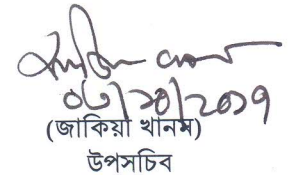 ০৩/১০/২০১৭
(জাকিয়া খানম)
উপসচিব